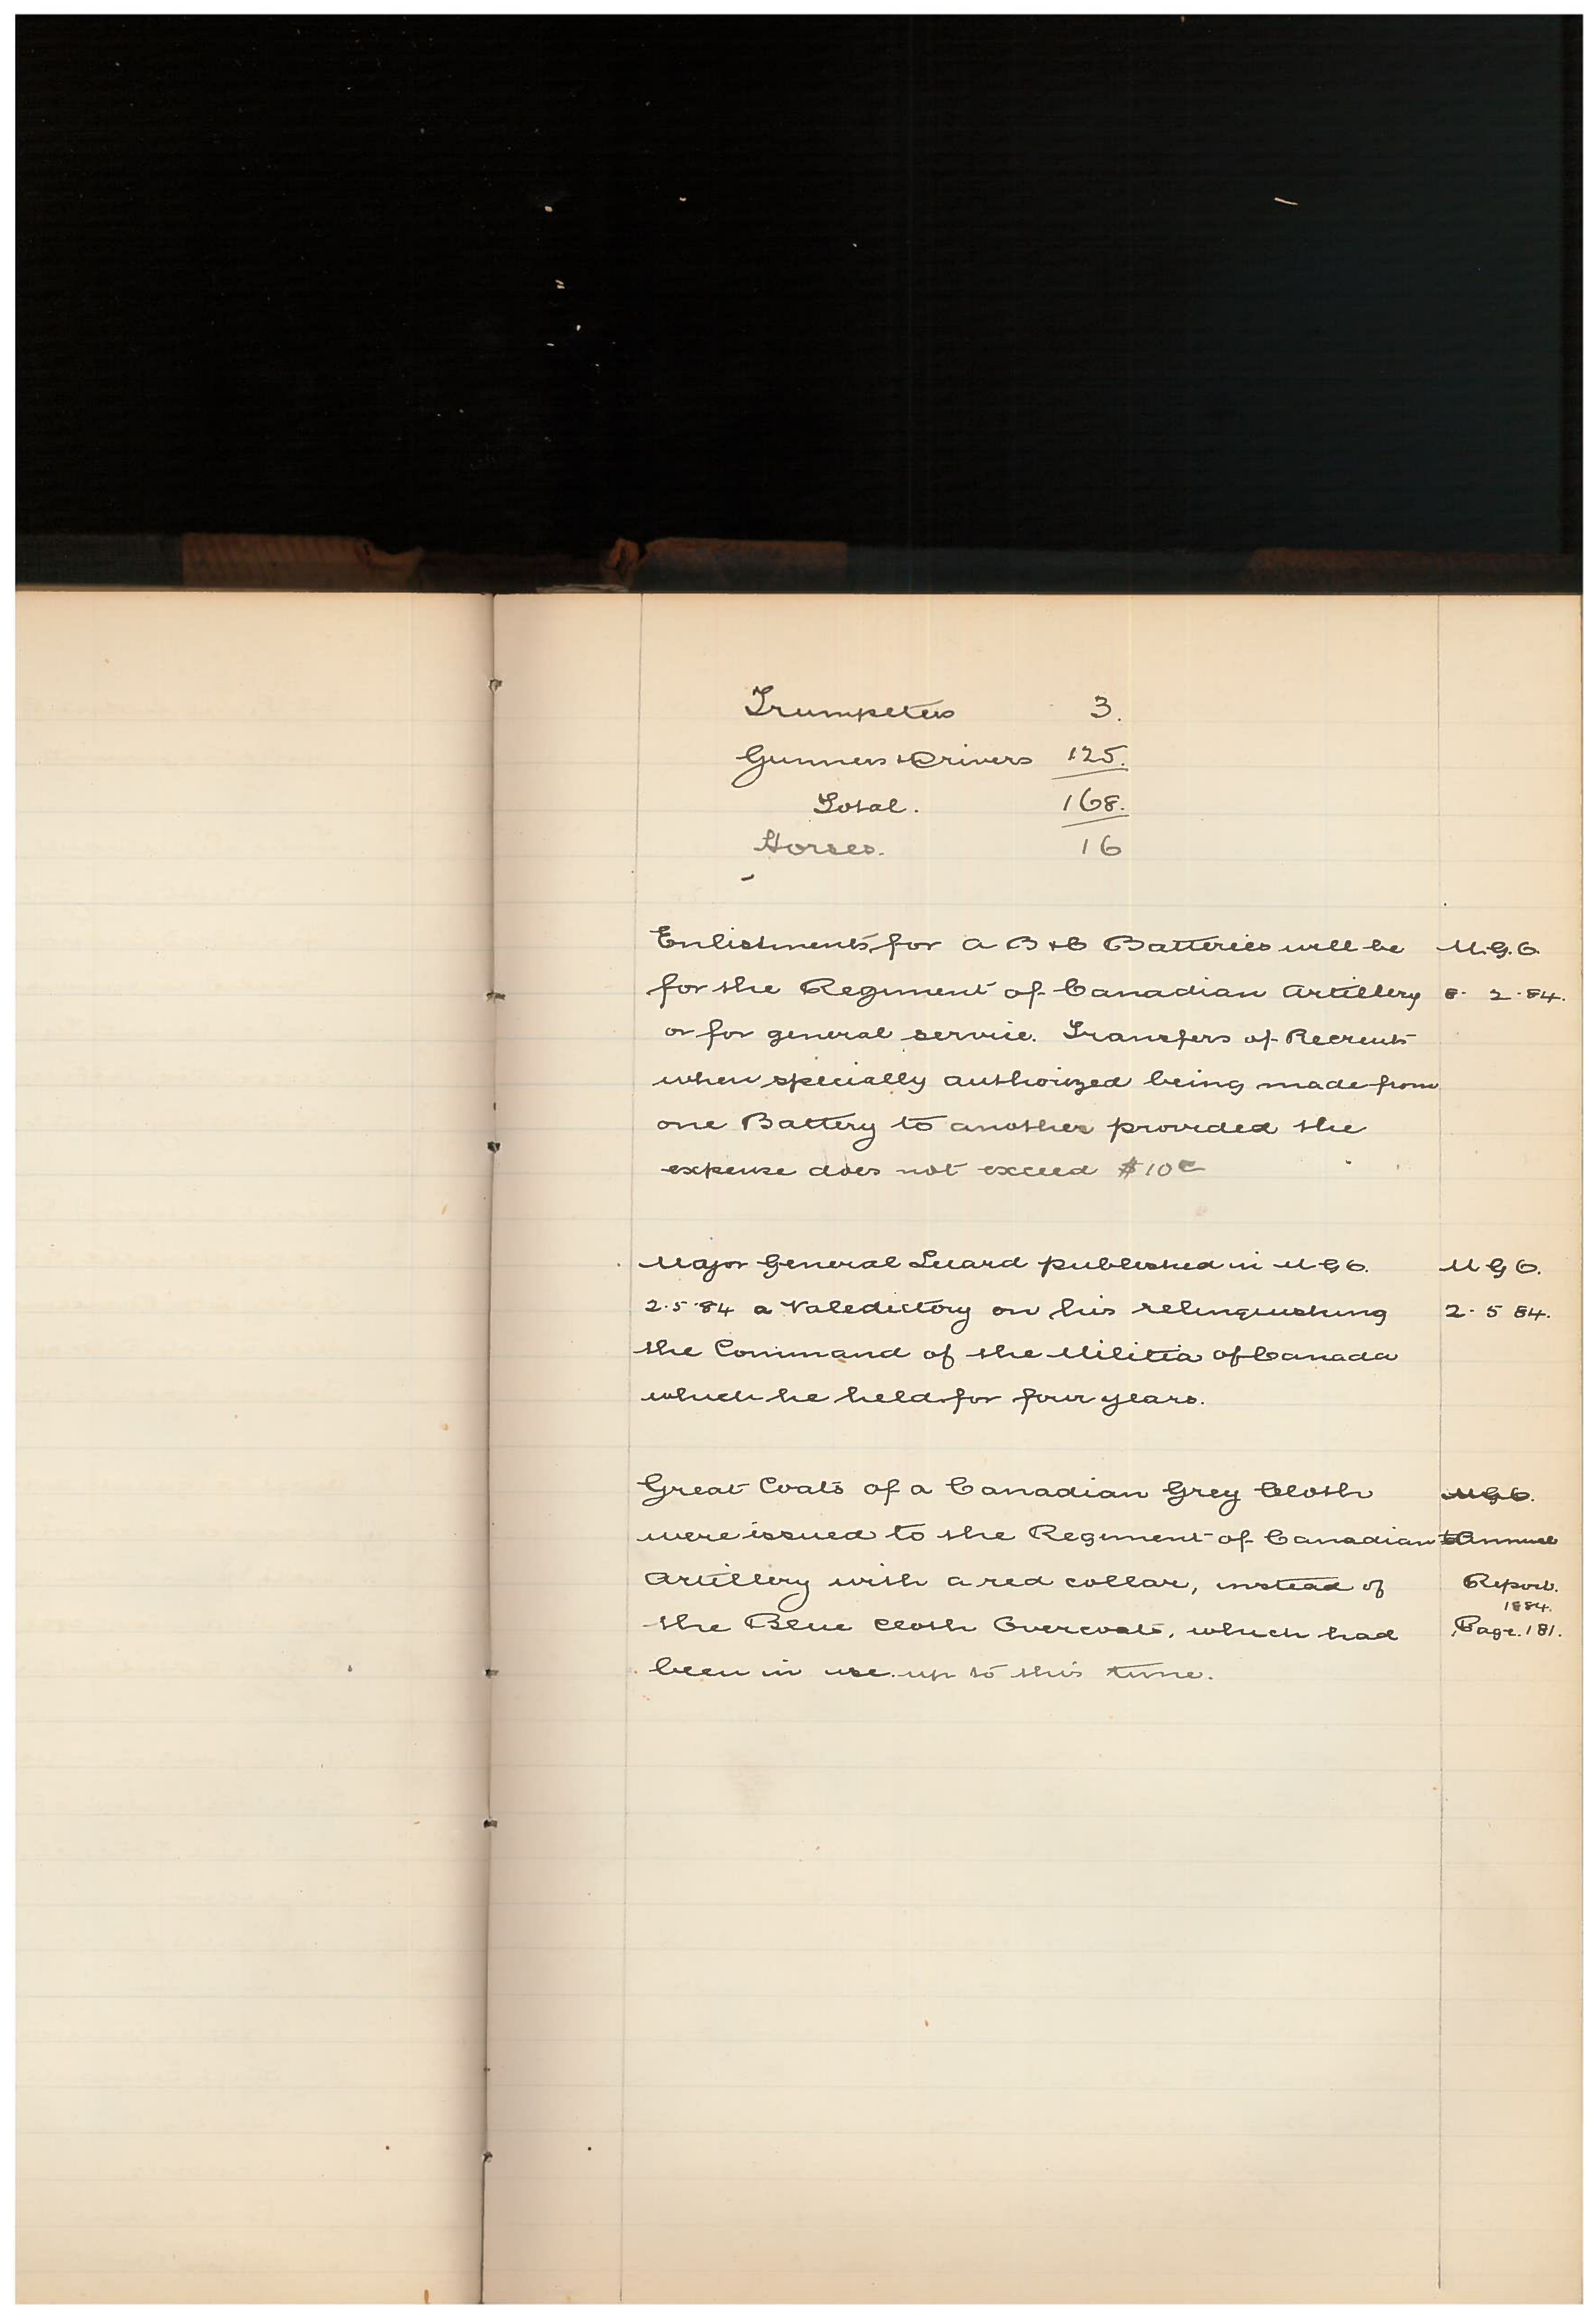 Trumpeters 3.
Gunners & Drivers 125.
Total. 168.
Horses. 16
Enlistments for A B & C Batteries will be M.G.O.
for the Regiment of Canadian Artillery 8. 2. 84.
or for general service. Transfers of Recruits
when specially authorized being made from
one Battery to another provided the
expense does not exceed $10
Major General Luard published in M G O. M G O.
2.5.84 a Valedictory on his relinquishing 2. 5 84.
the Command of the Militia of Canada
which he held for four years.
Great Coats of a Canadian Grey Cloth M.G.O.
were issued to the Regiment of Canadian Annual
Artillery with a red collar, instead of Report.
1884.
the Blue Cloth Overcoats, which had Page. 181.
been in use up to this time.